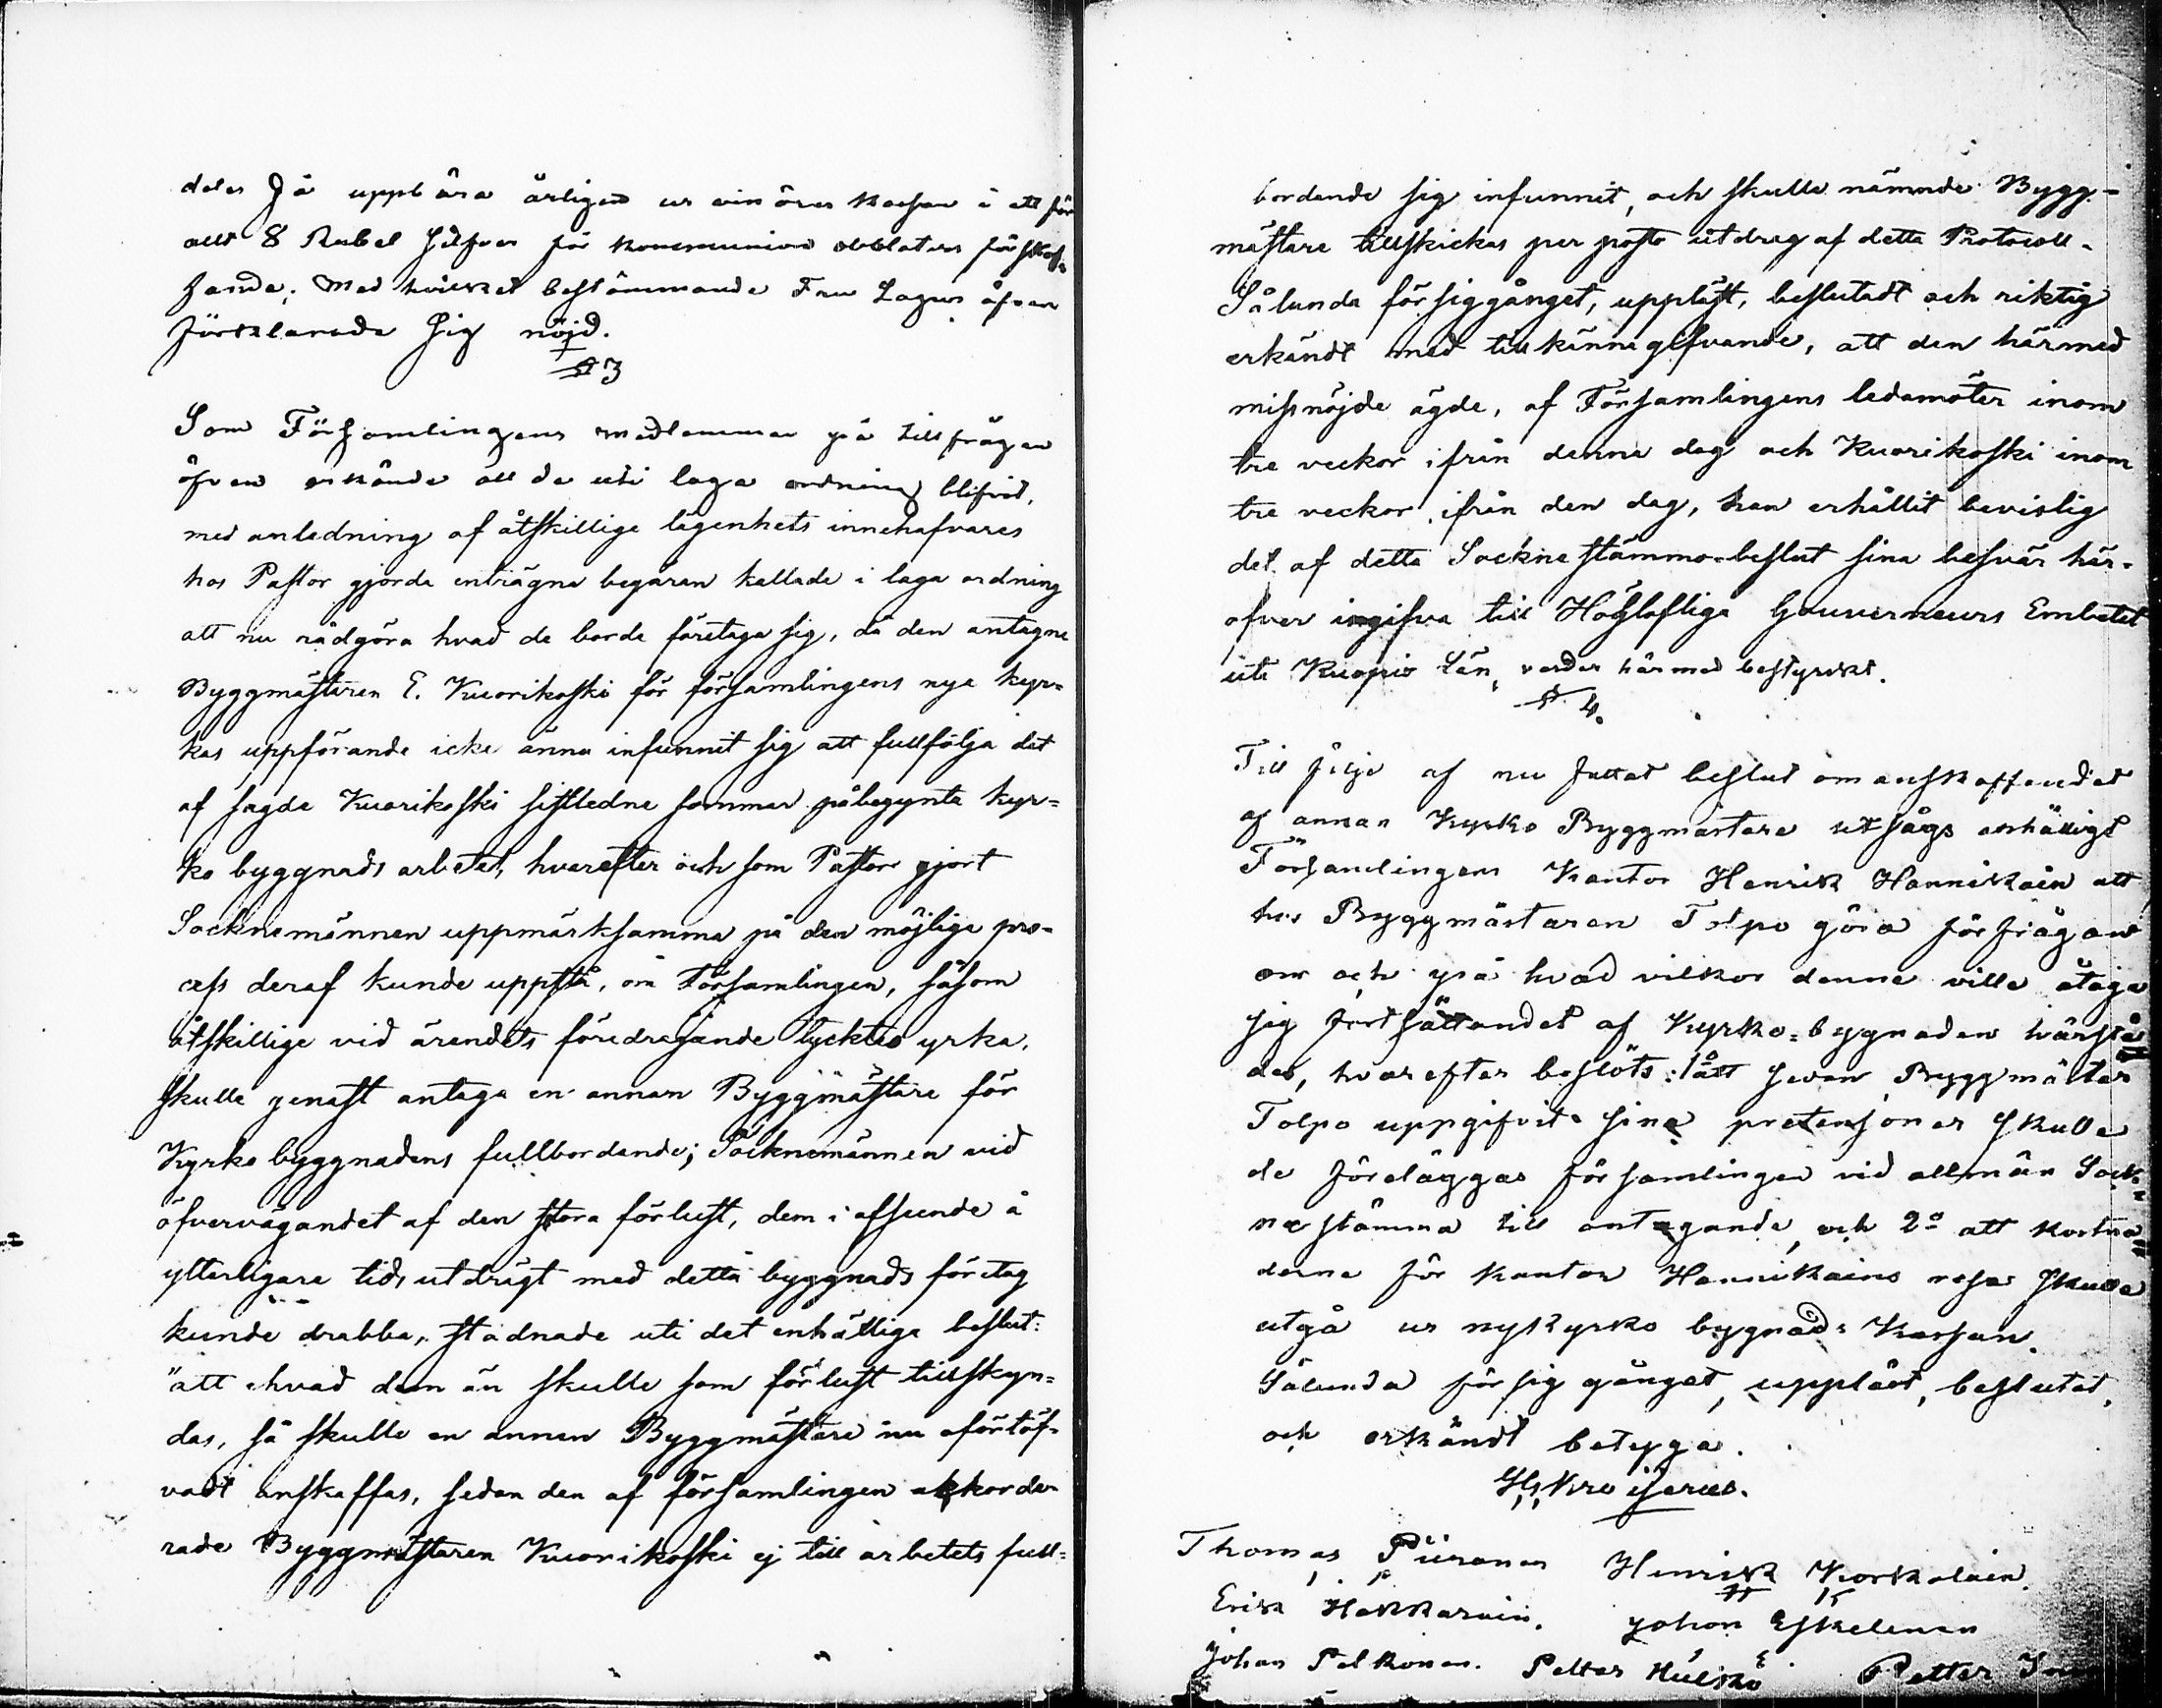 deles få uppbära årligen ur vinöres kassan i ett för
allt 8 Rubel Silfver för kommunion oblaters förskaf-
fande; Med hvilket bestämmande Fru Lagus äfven
förklarade sig nöjd.
§ 3
Som Församlingens medlemmar på tillfrågan
äfven erkände att de uti laga ordning blifvit,
med anledning af åtskillige lägenhets innehafvares
hos Pastor gjorda enträgna begäran kallade i laga ordning
att nu rådgöra hvad de borde företaga sig, då den antagne
Byggmästaren E. Kuorikoski för församlingens nya kyr-
kas uppförande icke ännu infunnit sig att fullfölja det
af sagde Kuorikoski sistledne sommar påbegynta kyr-
ko byggnads arbetet, hvarefter och som Pastor gjort
Socknemännen uppmärksamma på den möjliga pro-
cess deraf kunde uppstå, om Församlingen, såsom
åtskillige vid ärendets föredragande tycktes yrka,
skulle genast antaga en annan Byggmästare för
Kyrko byggnadens fullbordande; Socknemännen vid
öfvervägandet af den stora förlust, dem i afseende å
ytterligare tids utdrägt med detta byggnads företag
kunde drabba, stadnade uti det enhällige beslut:
"att hvad dem än skulle som förlust tillskyn-
das, så skulle en annan Byggmästare nu oförtöf-
vadt anskaffas, sedan den af församlingen akkorde-
rade Byggmästaren Kuorikoski ej till arbetets full-
bordande sig infunnit, och skulle nämnde Bygg-
mästare tillskickas per posto utdrag af detta Protocoll.
Sålunda försiggånget, uppläst, beslutadt och riktig
erkändt med tillkännagifvande, att den härmed
missnöjde ägde, af Församlingens ledamöter inom
tre veckor ifrån denna dag och Kuorikoski inom
tre veckor, ifrån den dag, han erhållit bevislig
del af detta Sockne stämmo-beslut sina besvär här-
öfver ingifva till Höglofliga Gouverneurs Embetet
uti Kuopio Län, varder härmed bestyrkt.
§ 4.
Till följe af nu fattat beslut om anskaffandet
af annan Kyrko Byggmästare utsågs enhälligt
Församlingens Kantor Henrik Hannikain att
hos Byggmästaren Tolpo göra förfrågan
om och på hvad vilkor denne ville åtaga
sig fortsättandet af Kyrko-bygnaden härstä-
des, hvarefter beslöts: 1° att sedan Byggmästar
Tolpo uppgifvit sina pretensjoner skulle
de föreläggas församlingen vid allmän Sock-
ne stämma till antagande, och 2° att kostna-
derna för Kantor Hannikains resa skulle
utgå ur nykyrko bygnads Kassan.
Sålunda försig gånget, uppläst, beslutat,
och erkändt betyga.
Thomas Piironen Henrik Korkalain.
Erik Hakkarain. Johan Eskelinen
Johan Pelkonen. Petter Petter